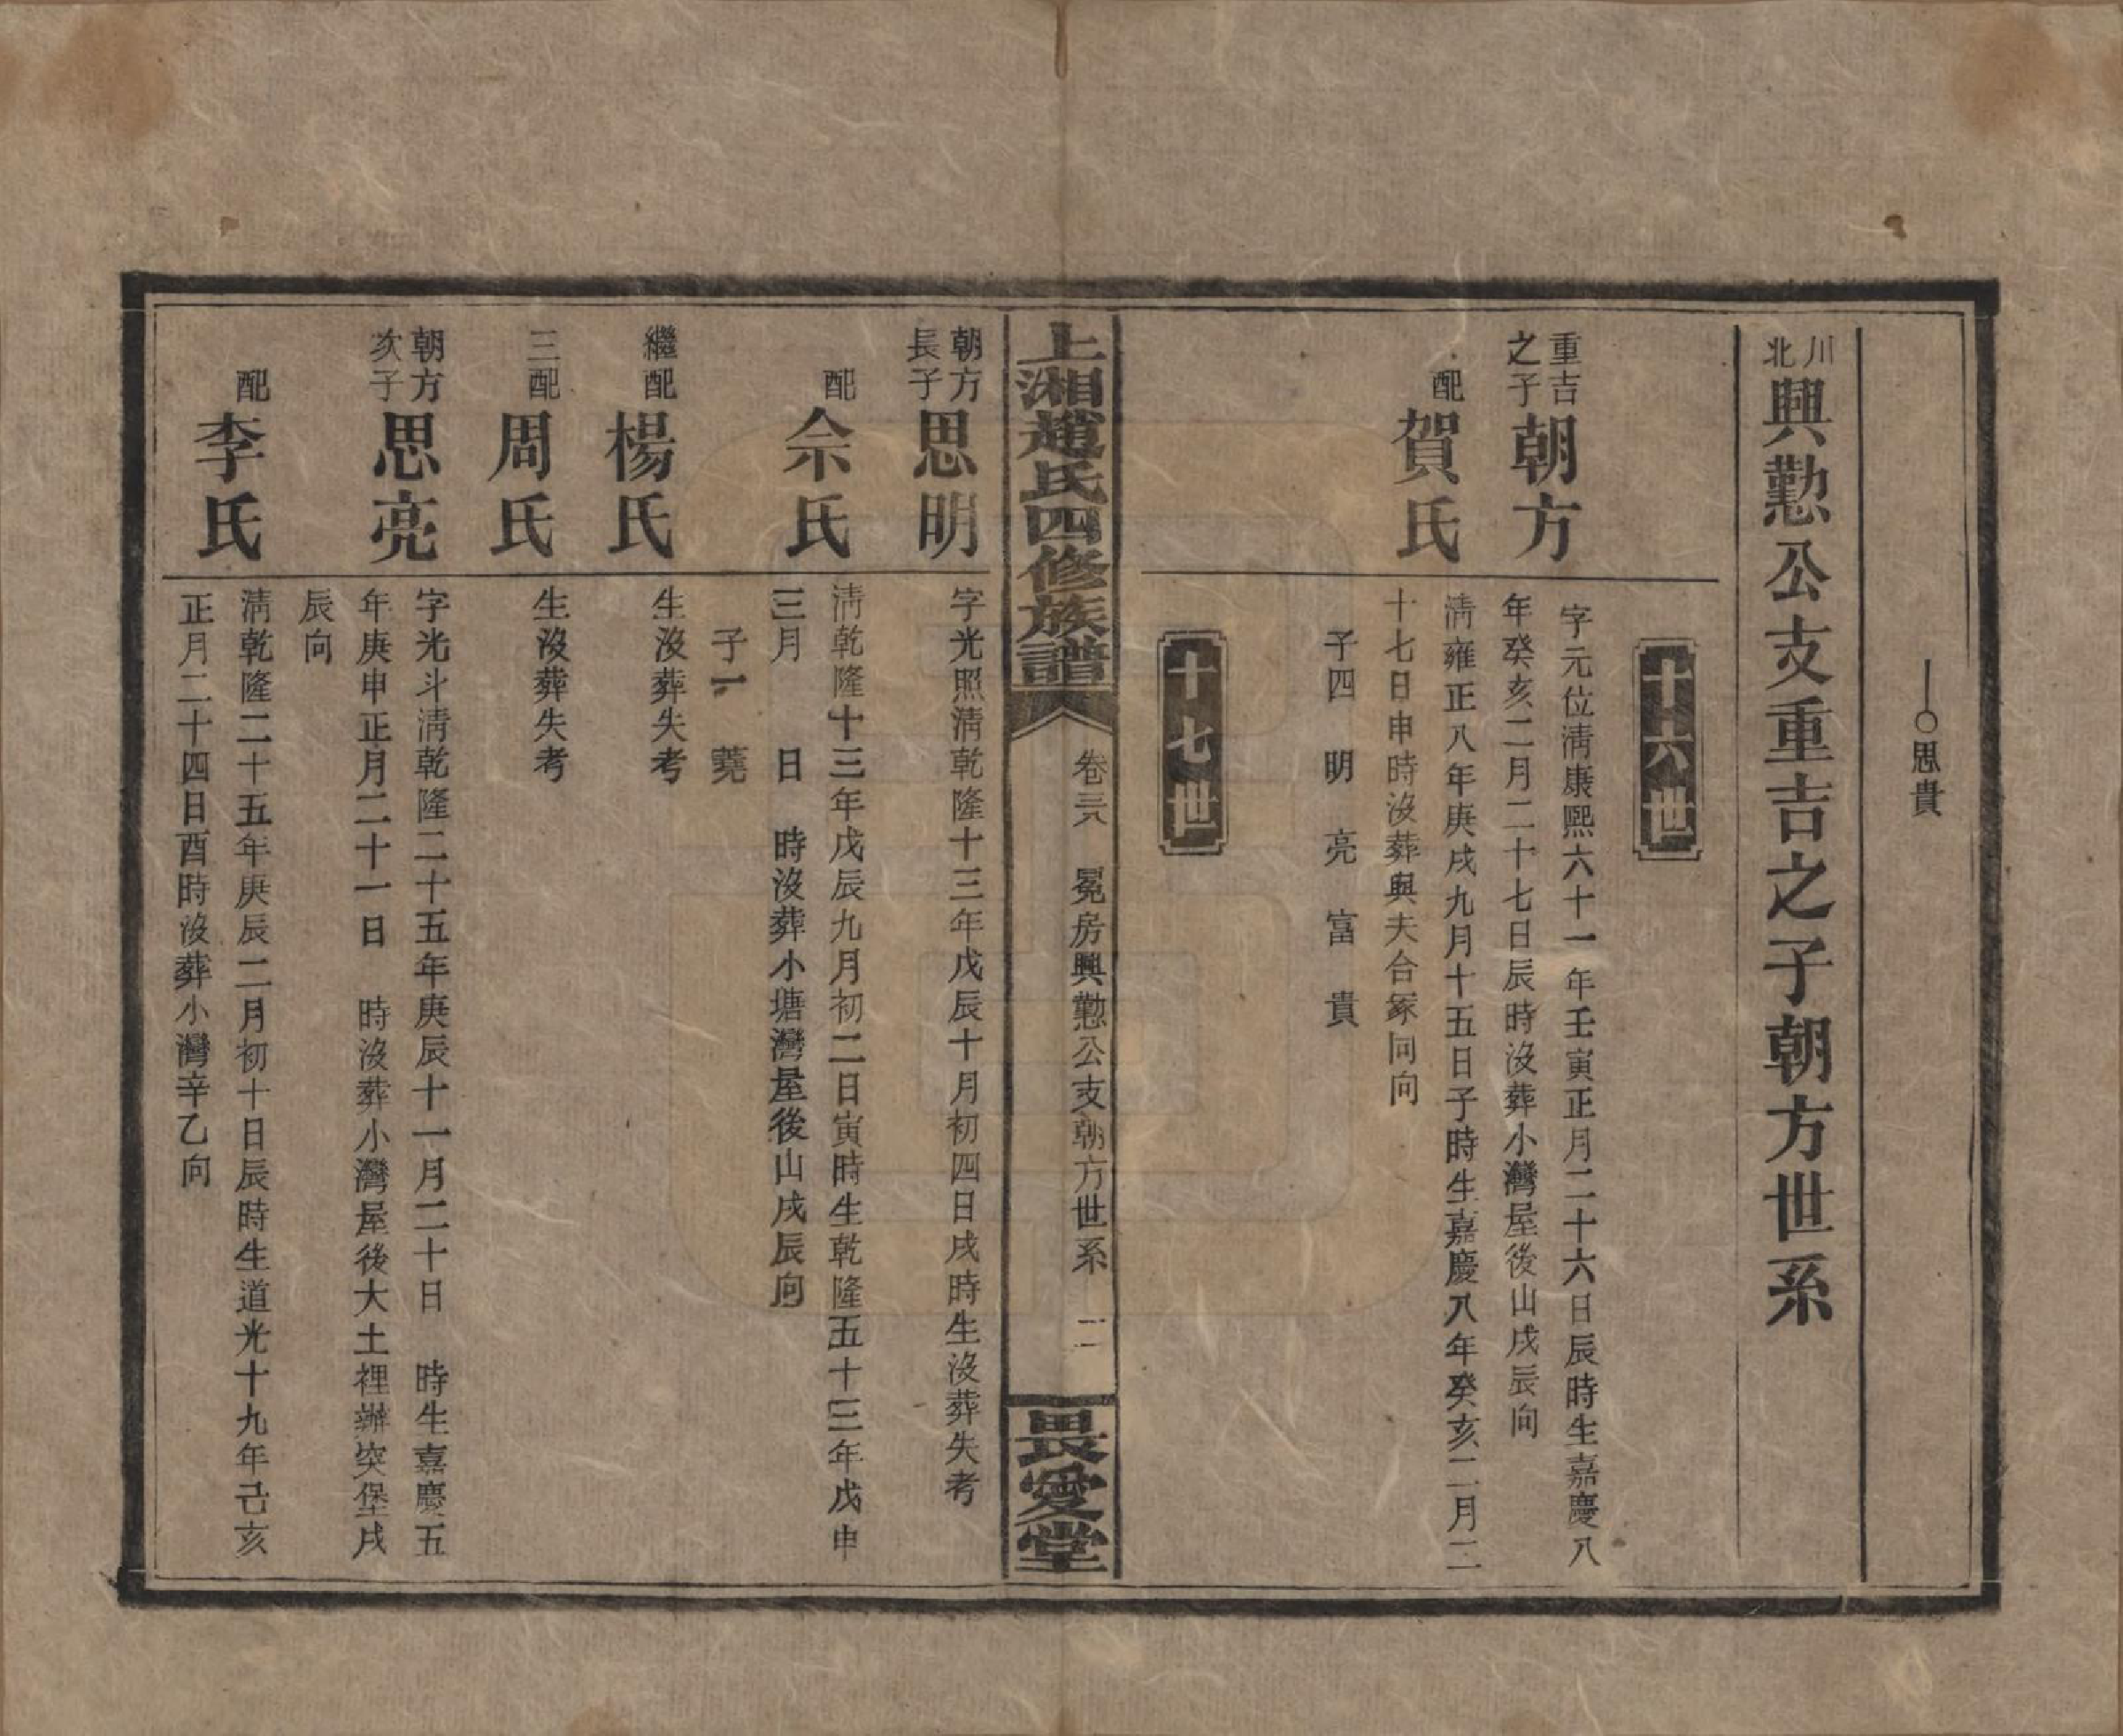 思貴
川北興懃公支重吉之子朝方世系
十六世
重吉之子朝方
字元位淸康熙六十一年壬寅正月二十六日辰時生嘉慶八
年癸亥二月二十七日辰時沒葬小灣屋後山戌辰向
配賀氏
淸雍正八年庚戌九月十五日子時生嘉慶八年癸亥二月二
十七日申時沒葬與夫合冢同向
子四　明　亮　富　貴
十七世
上湘趙氏四修族譜
卷三八　冕房興懃公支朝方世系　二
畏愛堂
朝方長子思明
字光照淸乾隆十三年戊辰十月初四日戌時生沒葬失考
配佘氏
淸乾隆十三年戊辰九月初二日寅時生乾隆五十三年戊申
三月　日　時沒葬小塘灣屋後山戌辰向
子一　蕘
繼配楊氏
生沒葬失考
三配周氏
生沒葬失考
朝方次子思亮
字光斗淸乾隆二十五年庚辰十一月二十日　時生嘉慶五
年庚申正月二十一日　時沒葬小灣屋後大土裡辦突堡戌
辰向
配李氏
淸乾隆二十五年庚辰二月初十日辰時生道光十九年己亥
正月二十四日酉時沒葬小灣辛乙向